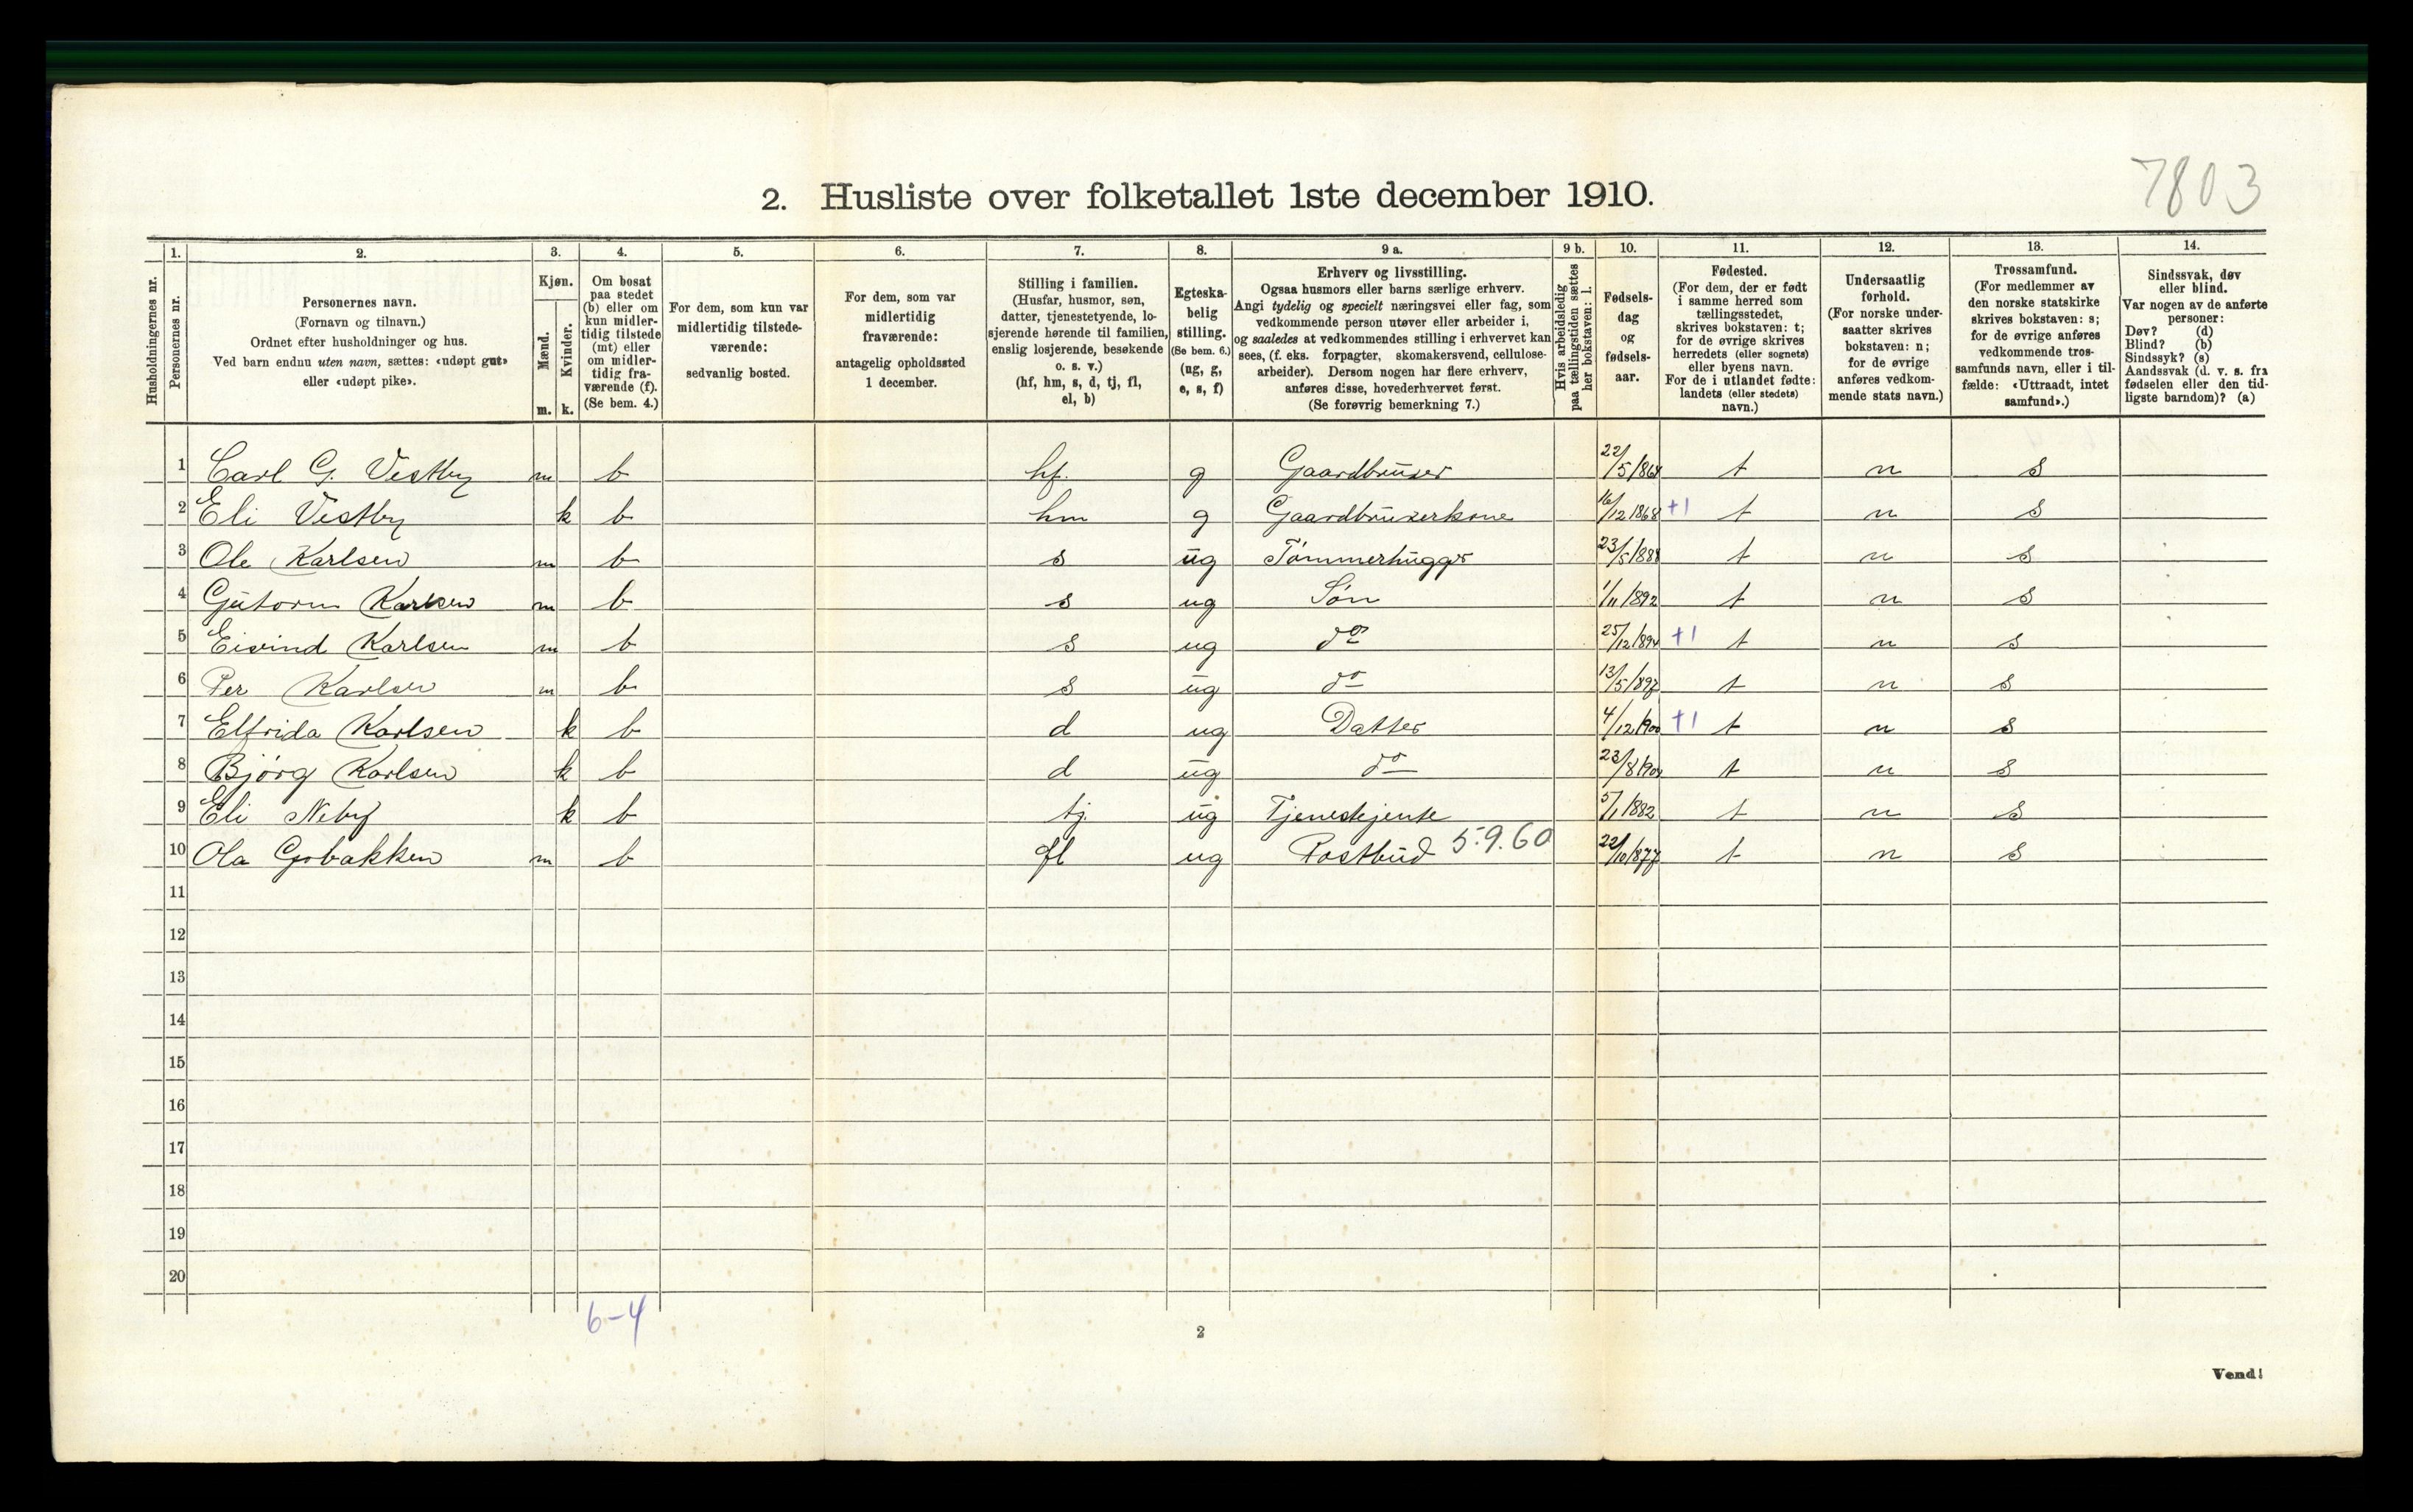 7803
2. Husliste over folketallet 1ste december 1910.
Husholdningernes nr.
1. Personernes nr.
2. Personernes navn. (Fornavn og tilnavn.) Ordnet efter husholdninger og hus. Ved barn endnu uten navn, sættes: «udøpt gut» eller «udøpt pike».
3. Kjøn. Mænd. m. Kvinder. k.
4. Om bosat paa stedet (b) eller om kun midlertidig tilstede (mt) eller om midlertidig fraværende (f). (Se bem. 4.)
5. For dem, som kun var midlertidig tilstedeværende: sedvanlig bosted.
6. For dem, som var midlertidig fraværende: antagelig opholdssted 1 december.
7. Stilling i familien. (Husfar, husmor, søn, datter, tjenestetyende, losjerende hørende til familien, enslig losjerende, besøkende o. s. v.) (hf, hm, s, d, tj, fl, el, b)
8. Egteskabelig stilling. (Se bem. 6.) (ug, g, e, s, f)
9 a. Erhverv og livsstilling. Ogsaa husmors eller barns særlige erhverv. Angi tydelig og specielt næringsvei eller fag, som vedkommende person utøver eller arbeider i, og saaledes at vedkommendes stilling i erhvervet kan sees, (f. eks. forpagter, skomakersvend, cellulosearbeider). Dersom nogen har flere erhverv, anføres disse, hovederhvervet først. (Se forøvrig bemerkning 7.)
9 b. Hvis arbeidsledig paa tællingstiden sættes her bokstaven: l.
10. Fødselsdag og fødselsaar.
11. Fødested. (For dem, der er født i samme herred som tællingsstedet, skrives bokstaven: t; for de øvrige skrives herredets (eller sognets) eller byens navn. For de i utlandet fødte: landets (eller stedets) navn.)
12. Undersaatlig forhold. (For norske undersaatter skrives bokstaven: n; for de øvrige anføres vedkommende stats navn.)
13. Trossamfund. (For medlemmer av den norske statskirke skrives bokstaven: s; for de øvrige anføres vedkommende trossamfunds navn, eller i tilfælde: «Uttraadt, intet samfund».)
14. Sindssvak, døv eller blind. Var nogen av de anførte personer: Døv? (d) Blind? (b) Sindssyk? (s) Aandssvak (d. v. s. fra fødselen eller den tidligste barndom)? (a)
1 Carl G. Vestby m b hf. g Gaardbruker 22/5/1864 t n s
2 Eli Vestby k b hm g Gaardbrukerkone 16/12 1868 +1 t n s
3 Ole Karlsen m b s ug Tømmerhugger 23/5/1888 t n s
4 Gutorm Karlsen m b s ug Søn 1/11/892 t n s
5 Eivind Karlsen m b s ug do 25/12/894 +1 t n s
6 Per Karlsen m b s ug do 13/5/897 t n s
7 Elfrida Karlsen k b d ug Datter 4/12/900 +1 t n s
8 Bjørg Karlsen k b d ug do 23/8/904 t n s
9 Eli Neby k b tj ug Tjenestjente 5/1 1882 t n s
10 Ola Gobakken m b fl ug Postbud 5.9.60 22/10/877 t n s
11
12
13
14
15
16
17
18
19
20
6-4
2
Vend!